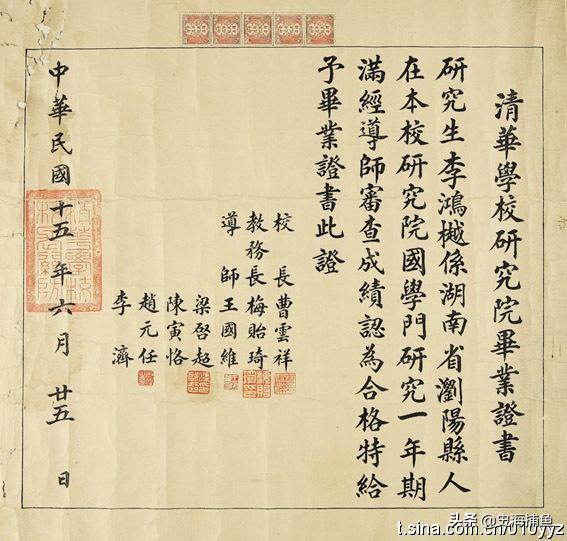 清華學校研究院畢業證書
研究生李鴻樾係湖南省瀏陽縣人
在本校研究院國學門研究一年期
滿經導師審查成績認為合格特給
予畢業證書此證
校長曹雲祥
教務長梅貽琦
導師王國維
梁啓超
陳寅恪
趙元任
李濟
中華民國十五年六月廿五日
头条@史海捕鱼
t.sina.com.cn/010yyz